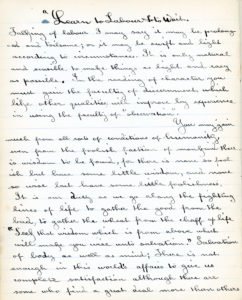 "Learn to Labour & to Wait.
Talking of labour I may say it may be prolong-
ed and toilsome; or it may be swift and light
according to circumstances. It is only natural
and sensible to make things as light and easy
as possible. In the reading of character you
must gain the faculty of discernment which
like other qualities will improve by experience
in using the faculty of observation.
You may gain
much from all sorts of conditions of humanity
even from the foolish portion of mankind there
is wisdom to be found, for there is none so fool-
ish but have some little wisdom, and none
so wise but have some little foolishness.
It is our duty as we go along the fighting
lines of life to gather the good from the
bad, to gather the wheat from the chaff of life.
"Seek that wisdom which is from above which
will make you wise unto salvation." Salvation
of body as well as mind; There is not
enough in this world's affairs to give us
complete satisfaction although there are
some who find a great deal more than others